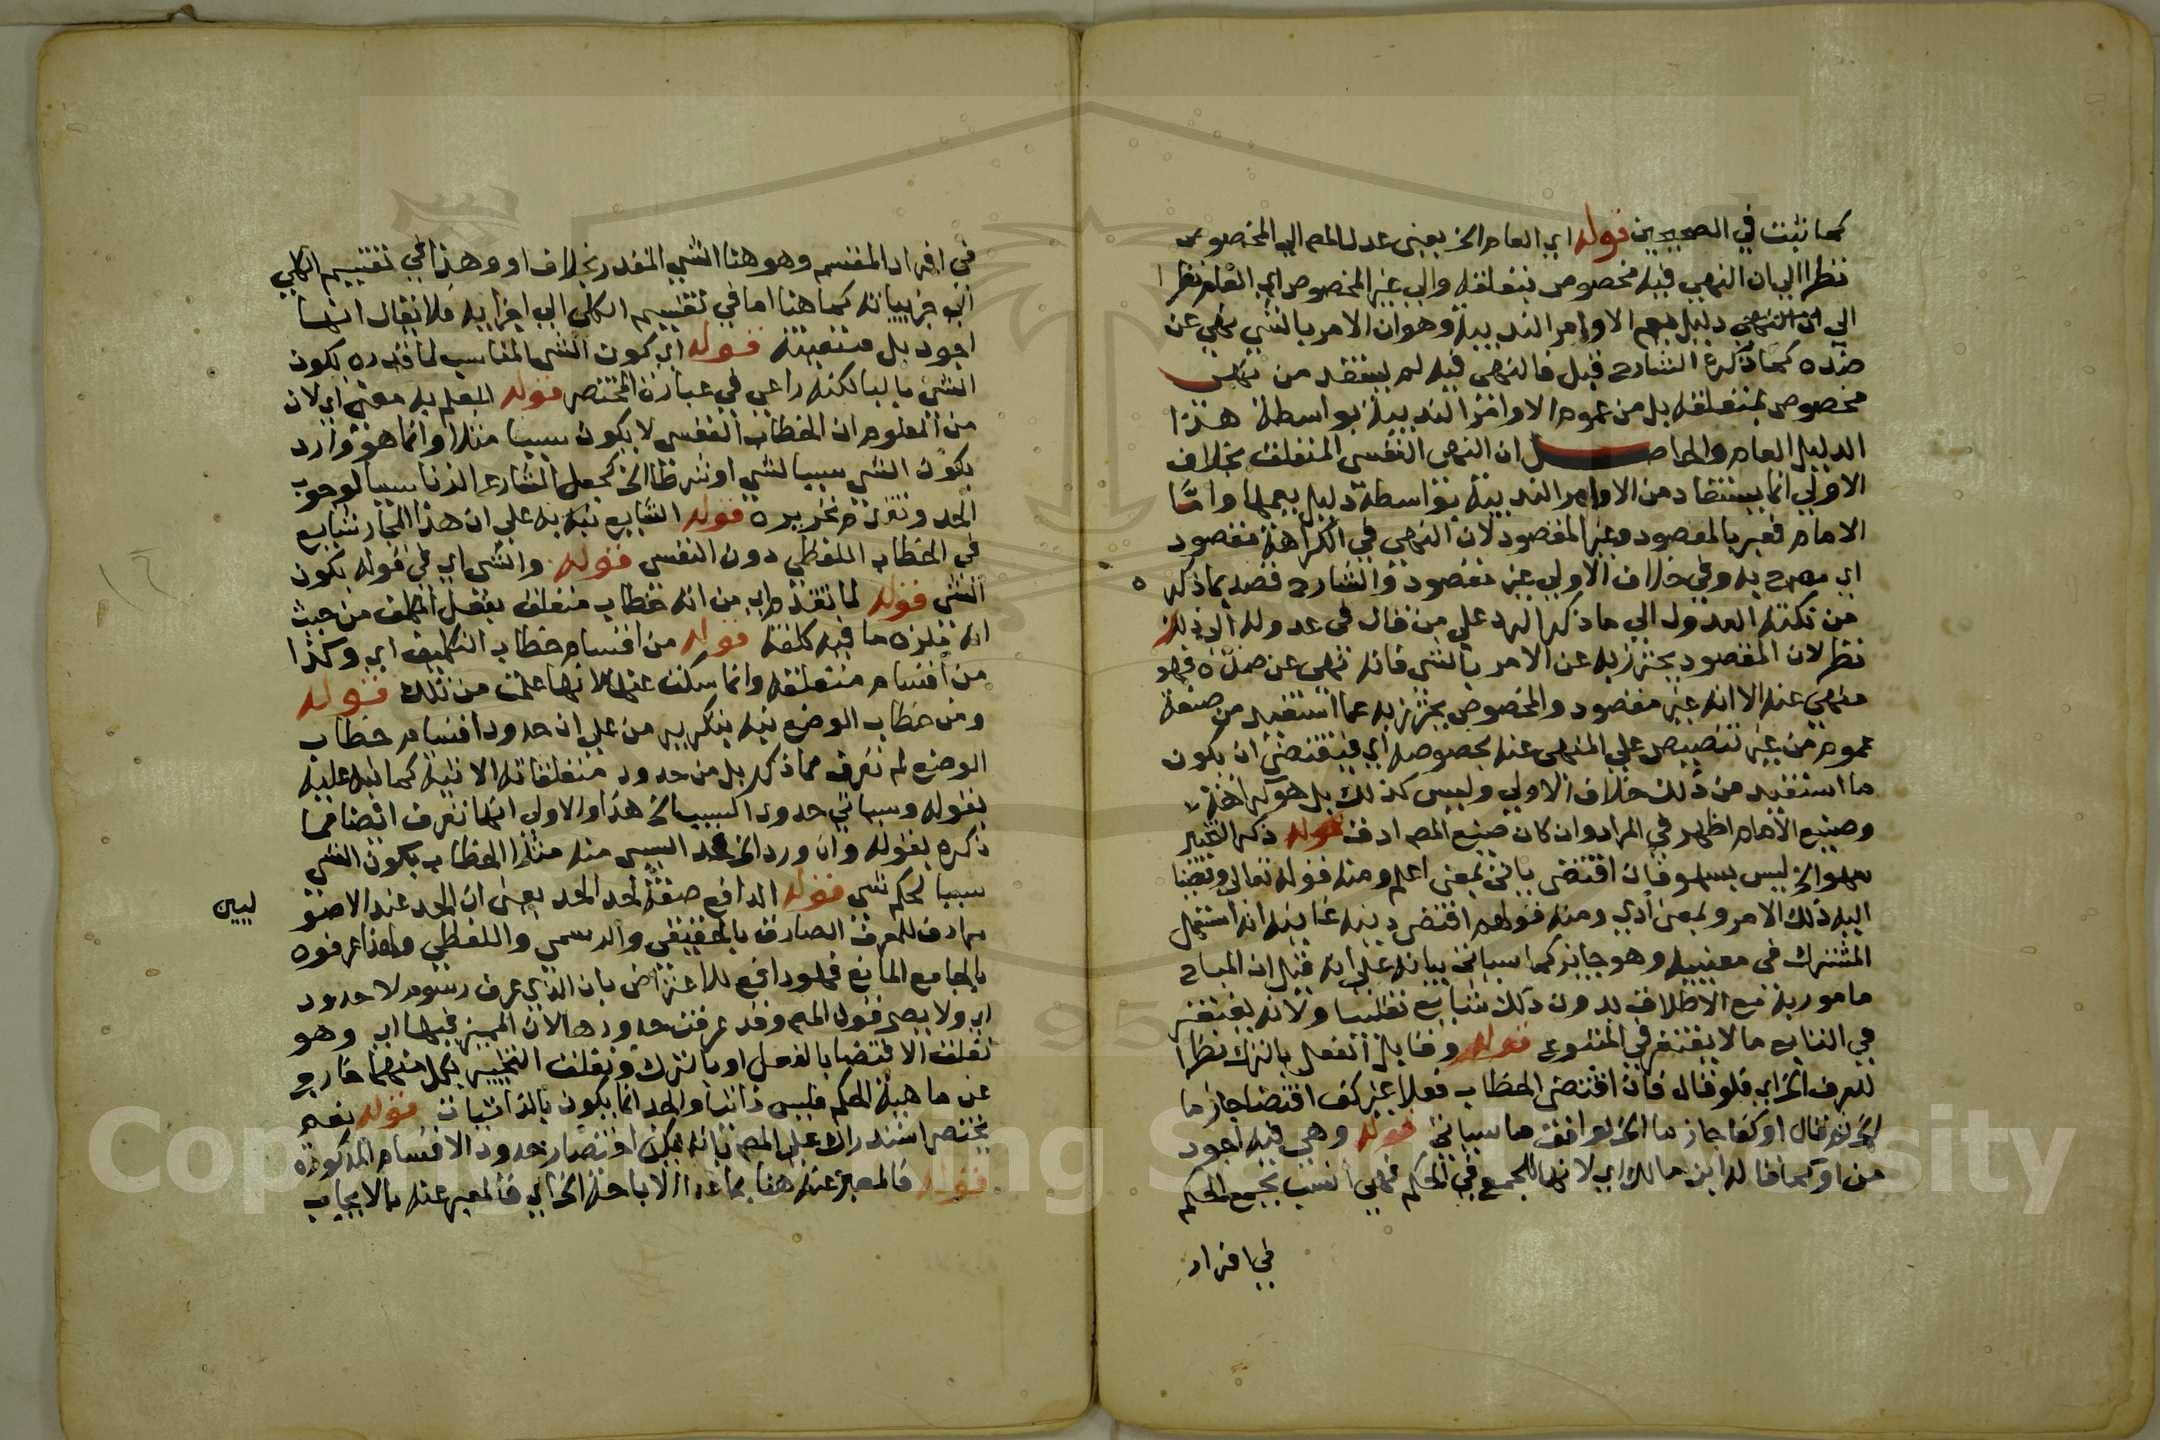 كما ثبت في الصحيحين قوله اي العام الخ يعني عدل المص الي المخصوص
نظرا الي ان النهي فيه مخصوص بمتعلقه والي غير المخصوص اي العام نظرا
الي ان النهي دليل يعم الاوامر الندبية وهو ان الامر بالشي نهي عن
ضده كما ذكره الشارح قبل فالنهي فيه لم يستفد من نهي
مخصوص بمتعلقه بل من عموم الاوامر الندبية بواسطة هذا
الدليل العام والحاصل ان النهي النفسي المتعلق بخلاف
الاولي انما يستفاد من الاوامر الندبية بواسطة دليل يعمها واما
الامام فعبر بالمقصود وغير المقصود لان النهي في الكراهة مقصود
اي مصرح به وفي خلاف الاولي غير مقصود والشارح قصد بما ذكره
من نكتة العدول الي ما ذكر الرد علي من قال في عدوله الي ذلك
نظر لان المقصود يحترز به عن الامر بالشي فانه نهي عن ضده فهو
منهي عنه الا انه غير مقصود والمخصوص يحترز به عما استفيد من صيغة
عموم من غير تنصيص علي المنهي عنه بخصوصه اي فيقتضي ان يكون
ما استفيد من ذلك خلاف الاولي وليس كذلك بل هو كراهة
وصنيع الامام اظهر في المراد وان كان صنيع المص ادق قوله ذكر التخيير
سهو الخ ليس بسهو فان اقتضي ياتي بمعني اعلم ومنه قوله تعالي وقضينا
اليه ذلك الامر وبمعني ادي ومنه قولهم اقتضي دينه غايته انه استعمل
المشترك في معنييه وهو جايز كما سياتي بيانه علي انه قيل ان المباح
مامور به مع الاطلاق بدون ذلك شايع تغليبا ولانه يغتفر
في التابع ما لا يغتفر في المتبوع قوله وقابل الفعل بالترك نظرا
للعرف الخ اي فلو قال فان اقتضي الخطاب فعلا غير كف اقتضا جازما
الخ ثم قال او كفا جازما الخ لوافق ما سياتي قوله وهي فيه اجود
من او كما قال ابن مالك اي لانها للجمع في الحكم فهي انسب بجمع الحكم
في افراد
في افراد المقسم وهو هنا الشي المقدر بخلاف او وهذا في تقسيم الكلي
الي جزيياته كما هنا اما في تقسيم الكلي الي اجزايه فلا يقال انها
اجود بل متعينة قوله اي كون الشي المناسب لما قدره بكون
الشي باليا لكنه راعي في عبارة المختصر قوله للعلم به معني اي لان
من المعلوم ان الخطاب النفسي لا يكون سببا مثلا وانما هو وارد
بكون الشي سببا لشي او شرطا الخ كجعل الشارع الزنا سببا لوجوب
الحد وتقدم تحريره قوله الشايع نبه به علي ان هذا المجاز شايع
في الخطاب اللفظي دون النفسي قوله والشي اي في قوله بكون
الشي قوله لما تقدم اي من انه خطاب متعلق بفعل المكلف من حيث
انه ملزم ما فيه كلفة قوله من اقسام خطاب التكليف اي وكذا
من اقسام متعلقه وانما سكت عنها لانها علمت من تلك قوله
ومن خطاب الوضع نبه بتكرير من علي ان حدود اقسام خطاب
الوضع لم تعرف مما ذكر بل من حدود متعلقاته الاتية كما نبه عليه
بقوله وسياتي حدود السبب الخ هذا والاولي انها تعرف ايضا مما
ذكره بقوله وان ورد الخ فحد السببي منه مثلا الخطاب بكون الشي
سببا لحكم شي قوله الدافع صفة لحد الحد يعني ان الحد عند الاصو
ليين
مرادف للمعرف الصادق بالحقيقي والرسمي واللفظي ولهذا عرفوه
بالجامع المانع فهو دافع للاعتراض بان الذي عرف رسوم لا حدود
اي ولا يصح قول المص وقد عرفت حدودها لان المميز فيها اي وهو
تعلق الاقتضا بالفعل او بالترك وتعلق التخيير بكل منهما خارج
عن ماهية الحكم فليس ذاتيا والحد انما يكون بالذاتيات قوله نعم
يختصر استدراك علي المص بانه يمكن اختصار حدود الاقسام المذكورة
قوله فالمعبر عنه هنا بما عدا الاباحة الخ اي فالمعبر عنه بالايجاب